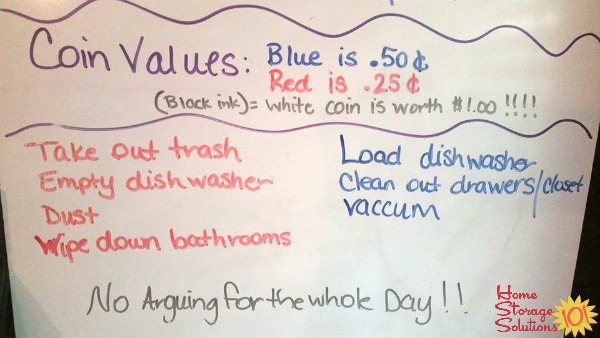 Coin Values: Blue is .50¢
Red is .25¢
(Black ink) = white coin is worth $1.00 !!!!
Take out trash
Empty dishwasher
Dust
Wipe down bathrooms
Load dishwasher
Clean out drawers/closet
vaccum
No Arguing for the whole Day!!
Home
Storage
Solutions 101